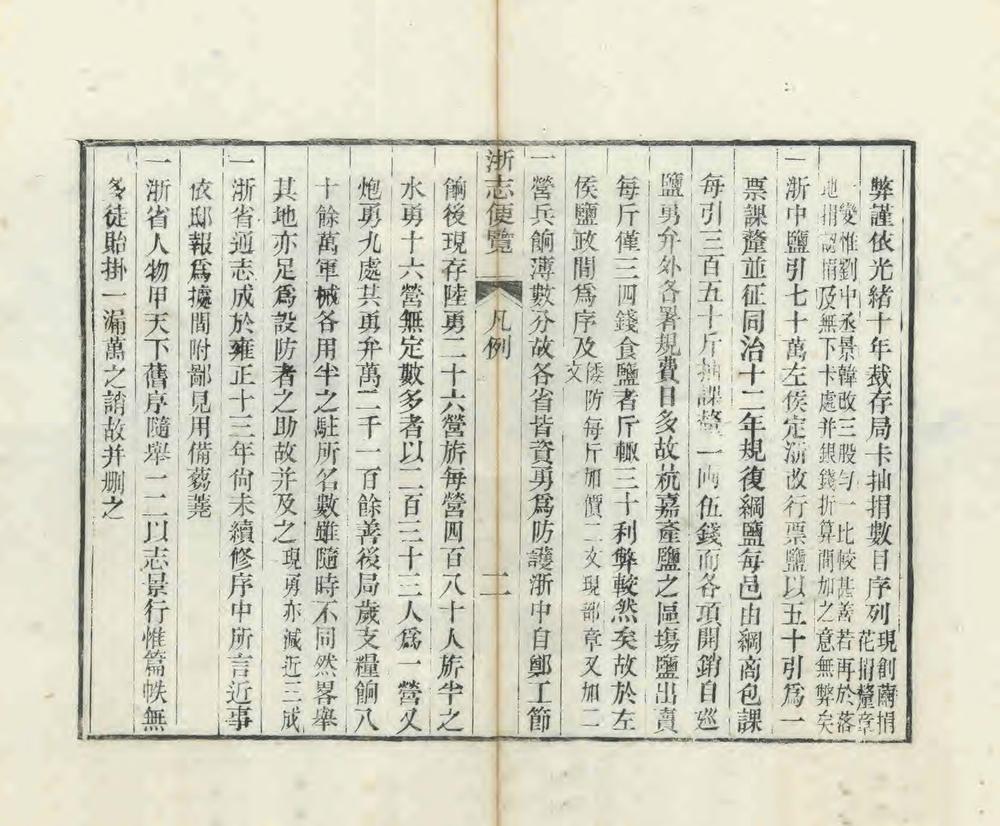 弊謹依光緒十年裁存局卡抽捐數目序列現創繭捐花捐釐章
一變惟劉中丞景韓改三股勻一比較甚善若再於落地捐認捐及無下卡處并銀錢折算間加之意無弊矣
一浙中鹽引七十萬左侯定浙改行票鹽以五十引爲一
票課釐並征同治十二年規復綱鹽每邑由綱商包課
每引三百五十斤抽課釐一兩伍錢而各項開銷自巡
鹽勇弁外各署規費日多故杭嘉產鹽之區塲鹽出賣
每斤僅三四錢食鹽者斤輙三十利弊較然矣故於左
侯鹽政開爲序及倭防每斤加價二文現部章又加二文
一營兵餉薄數分故各省皆資勇爲防護浙中自鄭工節
浙志便覽 凡例 二
餉後現存陸勇二十六營旂每營四百八十人旂半之
水勇十六營無定數多者以二百三十三人爲一營又
炮勇九處其勇弁萬二千一百餘善後局歲支糧餉八
十餘萬軍械各用半之駐所名數雖隨時不同然畧舉
其地亦足爲設防者之助故并及之現勇亦減近三成
一浙省通志成於雍正十三年尙未續修序中所言近事
依邸報爲據間附鄙見用備蒭蕘
一浙省人物甲天下舊序隨舉一二以志景行惟篇帙無
多徒貽掛一漏萬之誚故并刪之